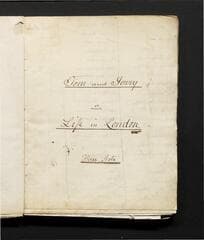 Tom and Jerry
or
Life in London